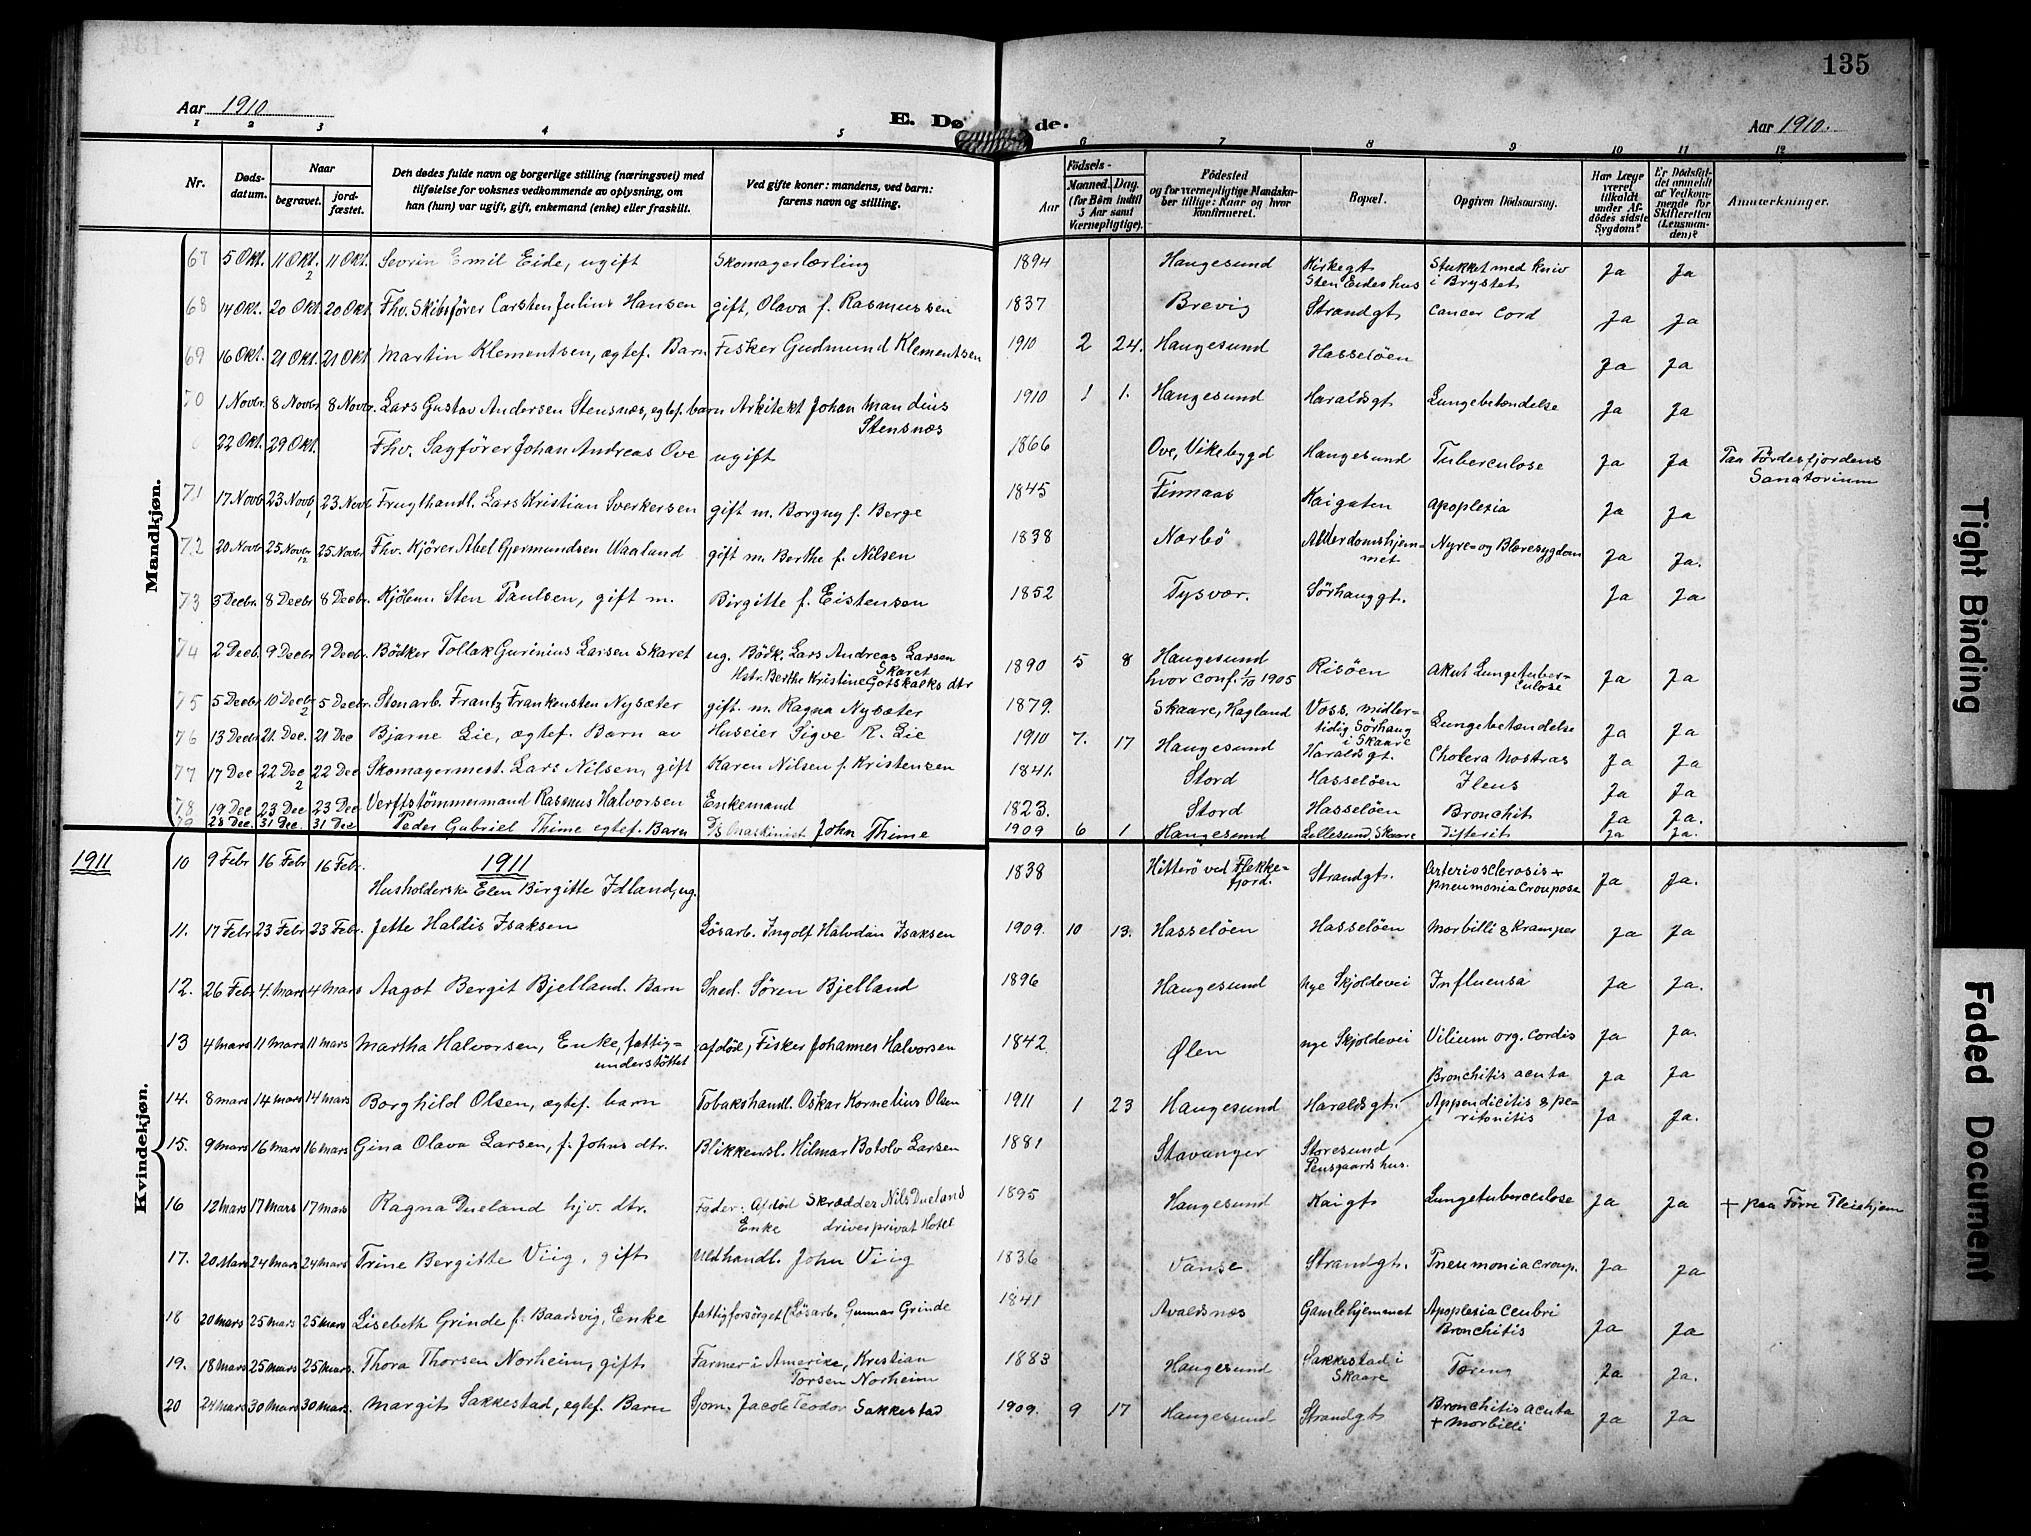 135
Aar 1910
E. Dø de.
Aar 1910.
1 2 3 4 5 6 7 8 9 10 11 12
Nr.
Døds-
datum.
Naar
begravet.
jord-
fæstet.
Den dødes fulde navn og borgerlige stilling (næringsvei) med
tilføielse for voksnes vedkommende av oplysning, om
han (hun) var ugift, gift, enkemand (enke) eller fraskilt.
Ved gifte koner: mandens, ved barn:
farens navn og stilling.
Fødsels-
Aar
Maaned. Dag.
(for Børn indtil
5 Aar samt
Værnepligtige).
Fødested
og for værnepligtige Mandska-
ber tillige: Naar og hvor
konfirmeret.
Bopæl.
Opgiven Dødsaarsag.
Har Læge
været
tilkaldt
under Af-
dødes sidste
Sygdom?
Er Dødsfal-
det anmeldt
af Vedkom-
mende for
Skifteretten
(Lensman-
den)?
Anmærkninger.
Mandkjøn.
67 5 Okt. 11 Okt. 11 Okt. Sevrin Emil Eide, ugift Skomagerlærling 1894 Haugesund Kirkegt Stukket med kniv Ja Ja
2 Sten Eides hus i Brystet
68 14 Okt. 20 Okt. 20 Okt. Fhv. Skibsfører Carsten Julius Hansen gift, Olava f. Rasmussen 1837 Brevig Strandgt Cancer Cord Ja Ja
69 16 Okt. 21 Okt. 21 Okt. Martin Klementsen, ægtef. Barn Fisker Gudmund Klementsen 1910 2 24. Haugesund Hasseløen Ja Ja
70 1 Novbr. 8 Novbr. 8 Novbr. Lars Gustav Andersen Stensnæs, egtef. barn Arkitekt Johan Mandius 1910 1 1. Haugesund Haraldsgt Lungebetændelse Ja Ja
Stensnæs
22 Okt. 29 Okt. Fhv. Sagfører Johan Andreas Ove ugift 1866 Ove, Vikebygd Haugesund Tuberculose Ja Ja Paa Førdesfjordens
Sanatorium
71 17 Novb 23 Novb, 23 Novb Frugthandl. Lars Kristian Sverkersen gift m. Borgny f. Berge 1845 Finnaas Kaigaten Apoplexia Ja Ja
72 20 Novbr 25 Novbr 25 Novbr Fhv. Kjører Abel Gjermundsen Waaland gift m. Berthe f. Nilsen 1838 Nærbö Alderdomshjem- Nyre- og Blæresygdom Ja Ja.
12 met
73 3 Decbr. 8 Decbr 8 Decbr. Kjøbm Sten Paulsen, gift m. Birgitte f. Eistensen 1852 Tysvær. Sörhauggt. Ja Ja
74 2 Decbr. 9 Decbr 9 Decbr. Bødker Tollak Gurinius Larsen Skaret ug. Bödk. Lars Andreas Larsen 1890 5 8 Haugesund Risöen Akut Lungetuber- Ja Ja
Skaret
Hstr. Berthe Kristine Gotskalks dtr hvor conf. 1/10 1905 culose
75 5 Decbr 10 Decbr 5 Decbr. Stenarb. Frantz Frankensten Nysæter gift. m. Ragna Nysæter 1879. Skaare, Hagland Voss. midler- Lungebetændelse Ja Ja
2 tidig Sörhaug
i Skaare
76 13 Decbr 21. Dec. 21 Dec Bjarne Lie, ægtef. Barn av Huseier Sigve R. Lie 1910 7. 17 Haugesund Haraldsgt. Cholera nostras Ja Ja
77 17 Dec 22 Dec 22 Dec Skomagermest. Lars Nilsen, gift Karen Nilsen f. Kristensen 1841. Stord Hasseløen Ileus Ja Ja
2
78 19 Dec 23 Dec 23 Dec Verftstömmermand Rasmus Halvorsen Enkemand 1823. Stord Hasseløen Bronchit Ja Ja.
79 28 Dec. 31 Dec. 31 Dec Peder Gabriel Thime egtef. Barn D/S Maskinist John Thime 1909 6 1 Haugesund Lillesund, Skaare Difterit Ja Ja.
1911
1911
Kvindekjøn.
10 9 Febr 16 Febr 16 Febr. Husholderske Elen Birgitte Idland, ug. 1838 Hitterö ved Flekke- Strandgt. Arteriosclerosis + Ja Ja.
fjord. pneumonia Crouposa
11. 17 Febr 23 Febr 23 Febr. Jette Haldis Isaksen Løsarb. Ingolf Halvdan Isaksen 1909. 10 13. Hasseløen Hasseløen Morbilli & Kramper Ja Ja
12. 26 Febr 4. Mars 4 Mars Aagot Bergit Bjelland. Barn Sned. Søren Bjelland 1896 Haugesund nye Skjoldevei Influensa Ja Ja.
13 4 Mars 11 Mars 11 Mars Martha Halvorsen, Enke, fattig- afdöd, Fisker Johannes Halvorsen 1842 Ølen nye Skjoldevei Vilium org. Cordis Ja Ja.
understöttet
14. 8 Mars 14 Mars 14 Mars Borghild Olsen, ægtef. barn Tobakshandl. Oskar Kornelius Olsen 1911 1 23 Haugesund Haraldsgt. Bronchitis acuta Ja Ja
15. 9 Mars 16 Mars 16 Mars Gina Olava Larsen, f. Johns dtr. Blikkensl. Hilmar Botolv Larsen 1881 Stavanger Storesund Appendicitis & pe- Ja Ja.
Pensgaards hus. ritonitis
16 12 Mars 17 Mars 17 Mars Ragna Dueland hjv. dtr. Fader: Afdöd Skrædder Nils Dueland 1895 Haugesund Kaigt Lungetuberculose Ja Ja + paa Førre Pleiehjem
Enke driver privat Hotel
17. 20 Mars 24 Mars 24 Mars Trine Bergitte Viig, gift Uldhandl. John Viig 1836 Vanse. Strandgt. Pneumonia Croup. Ja Ja
18 20 Mars 25 Mars 25 Mars. Lisebeth Grinde f. Baardsvig, Enke fattigforsørget (Løsarb. Gunnar Grinde 1841 Avaldsnæs Gamlehjemmet Apoplexia Ceubri Ja Ja
Bronchitis
19. 18 Mars 25 Mars 25 Mars. Thora Thorsen Norheim, gift Farmer i Amerika, Kristian 1883 Haugesund Sakkestad i Tæring Ja Ja.
Torsen Norheim Skaare
20 24 Mars 30 Mars 30 Mars. Margit Sakkestad, egtef. Barn Sjom. Jacob Teodor Sakkestad 1909. 9 17 Haugesund Strandgt Bronchitis acuta Ja Ja
+ Morbilli
Tight Binding
Faded Document